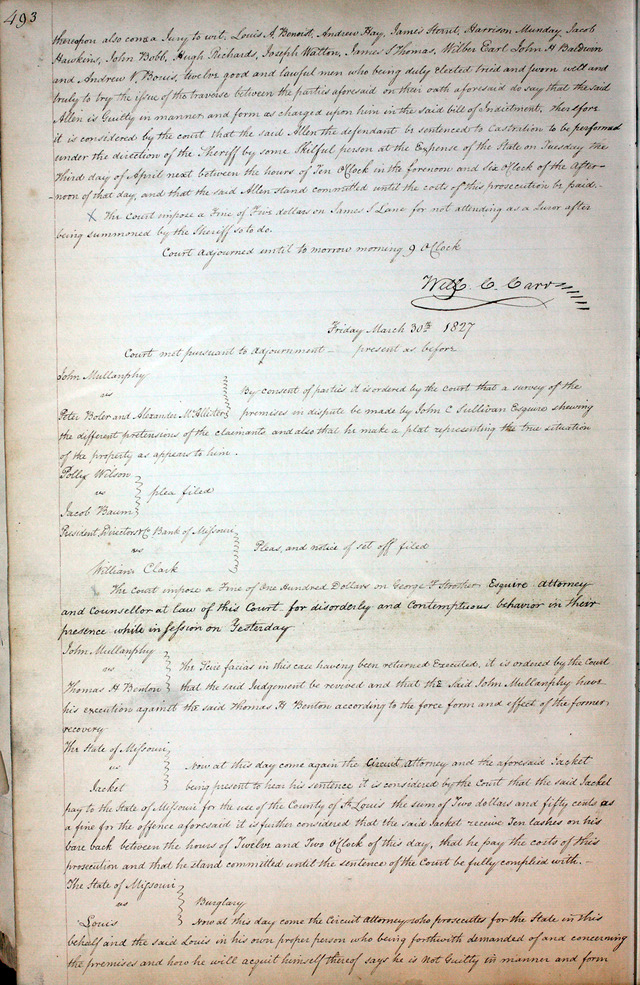 493
thereupon also came a Jury to wit, Louis A. Benoist, Andrew Hay, James Sterrit, Harrison Munday, Jacob
Hawkins, John Bobb, Hugh Richards, Joseph Walton, James S Thomas, Wilber Earl John H Baldwin
and Andrew V. Bouis, twelve good and lawful men who being duly elected tried and sworn well and
truly to try the issue of the traverse between the parties aforesaid on their oath aforesaid do say that the said
Allen is Guilty in manner and form as charged upon him in the said bill of Indictment. Therefore
it is considered by the court that the said Allen the defendant be sentenced to Castration to be performed
under the direction of the Sheriff by some Skilful person at the Expense of the State on Tuesday the
third day of April next between the hours of Ten O'Clock in the forenoon and six O'Clock of the after-
-noon of that day, and that the said Allen stand committed until the costs of this prosecution be paid. -
X The Court impose a Fine of Five dollars on James S Lane for not attending as a Juror after
being summoned by the Sheriff so to do.
Court adjourned until to morrow morning 9 O'Clock
Will. C. Carr
Friday March 30th 1827
Court met pursuant to adjournment - present as before
John Mullanphy
vs
By consent of parties it is ordered by the Court that a survey of the
Peter Boler and Alexander McAllister premises in dispute be made by John C Sullivan Esquire shewing
the different pretensions of the claimants, and also that he make a plat representing the true situation
of the property as appears to him.
Polly Wilson
vs plea filed
Jacob Baum
President Directors &c Bank of Missouri
vs Pleas, and notice of set off filed
William Clark
The Court impose a Fine of One Hundred Dollars on George F Strother Esquire Attorney
and Counsellor at law of this Court for disorderly and Contemptuous behavior in their
presence while in session on Yesterday
John Mullanphy
vs The Scire facias in this case haveng been returned Executed, it is ordered by the Court
Thomas H Benton that the said Judgement be revived and that the Said John Mullanphy have
his execution against the said Thomas H Benton according to the force form and effect of the former
recovery
The State of Missouri
vs Now at this day come again the Circuit Attorney and the aforesaid Jacket
Jacket being present to hear his sentence it is considered by the Court that the said Jacket
pay to the State of Missouri for the use of the County of St Louis the sum of Two dollars and fifty cents as
a fine for the offence aforesaid it is further considered that the said Jacket receive Ten lashes on his
bare back between the hours of Twelve and Two O'Clock of this day, that he pay the costs of this
prosecution and that he stand committed until the sentence of the Court be fully complied with. -
The State of Missouri
vs Burglary
Louis Now at this day come the Circuit Attorney who prosecutes for the State in this
behalf and the said Louis in his own proper person who being forthwith demanded of and concerning
the premises and how he will acquit himself thereof says he is Not Guilty in manner and form